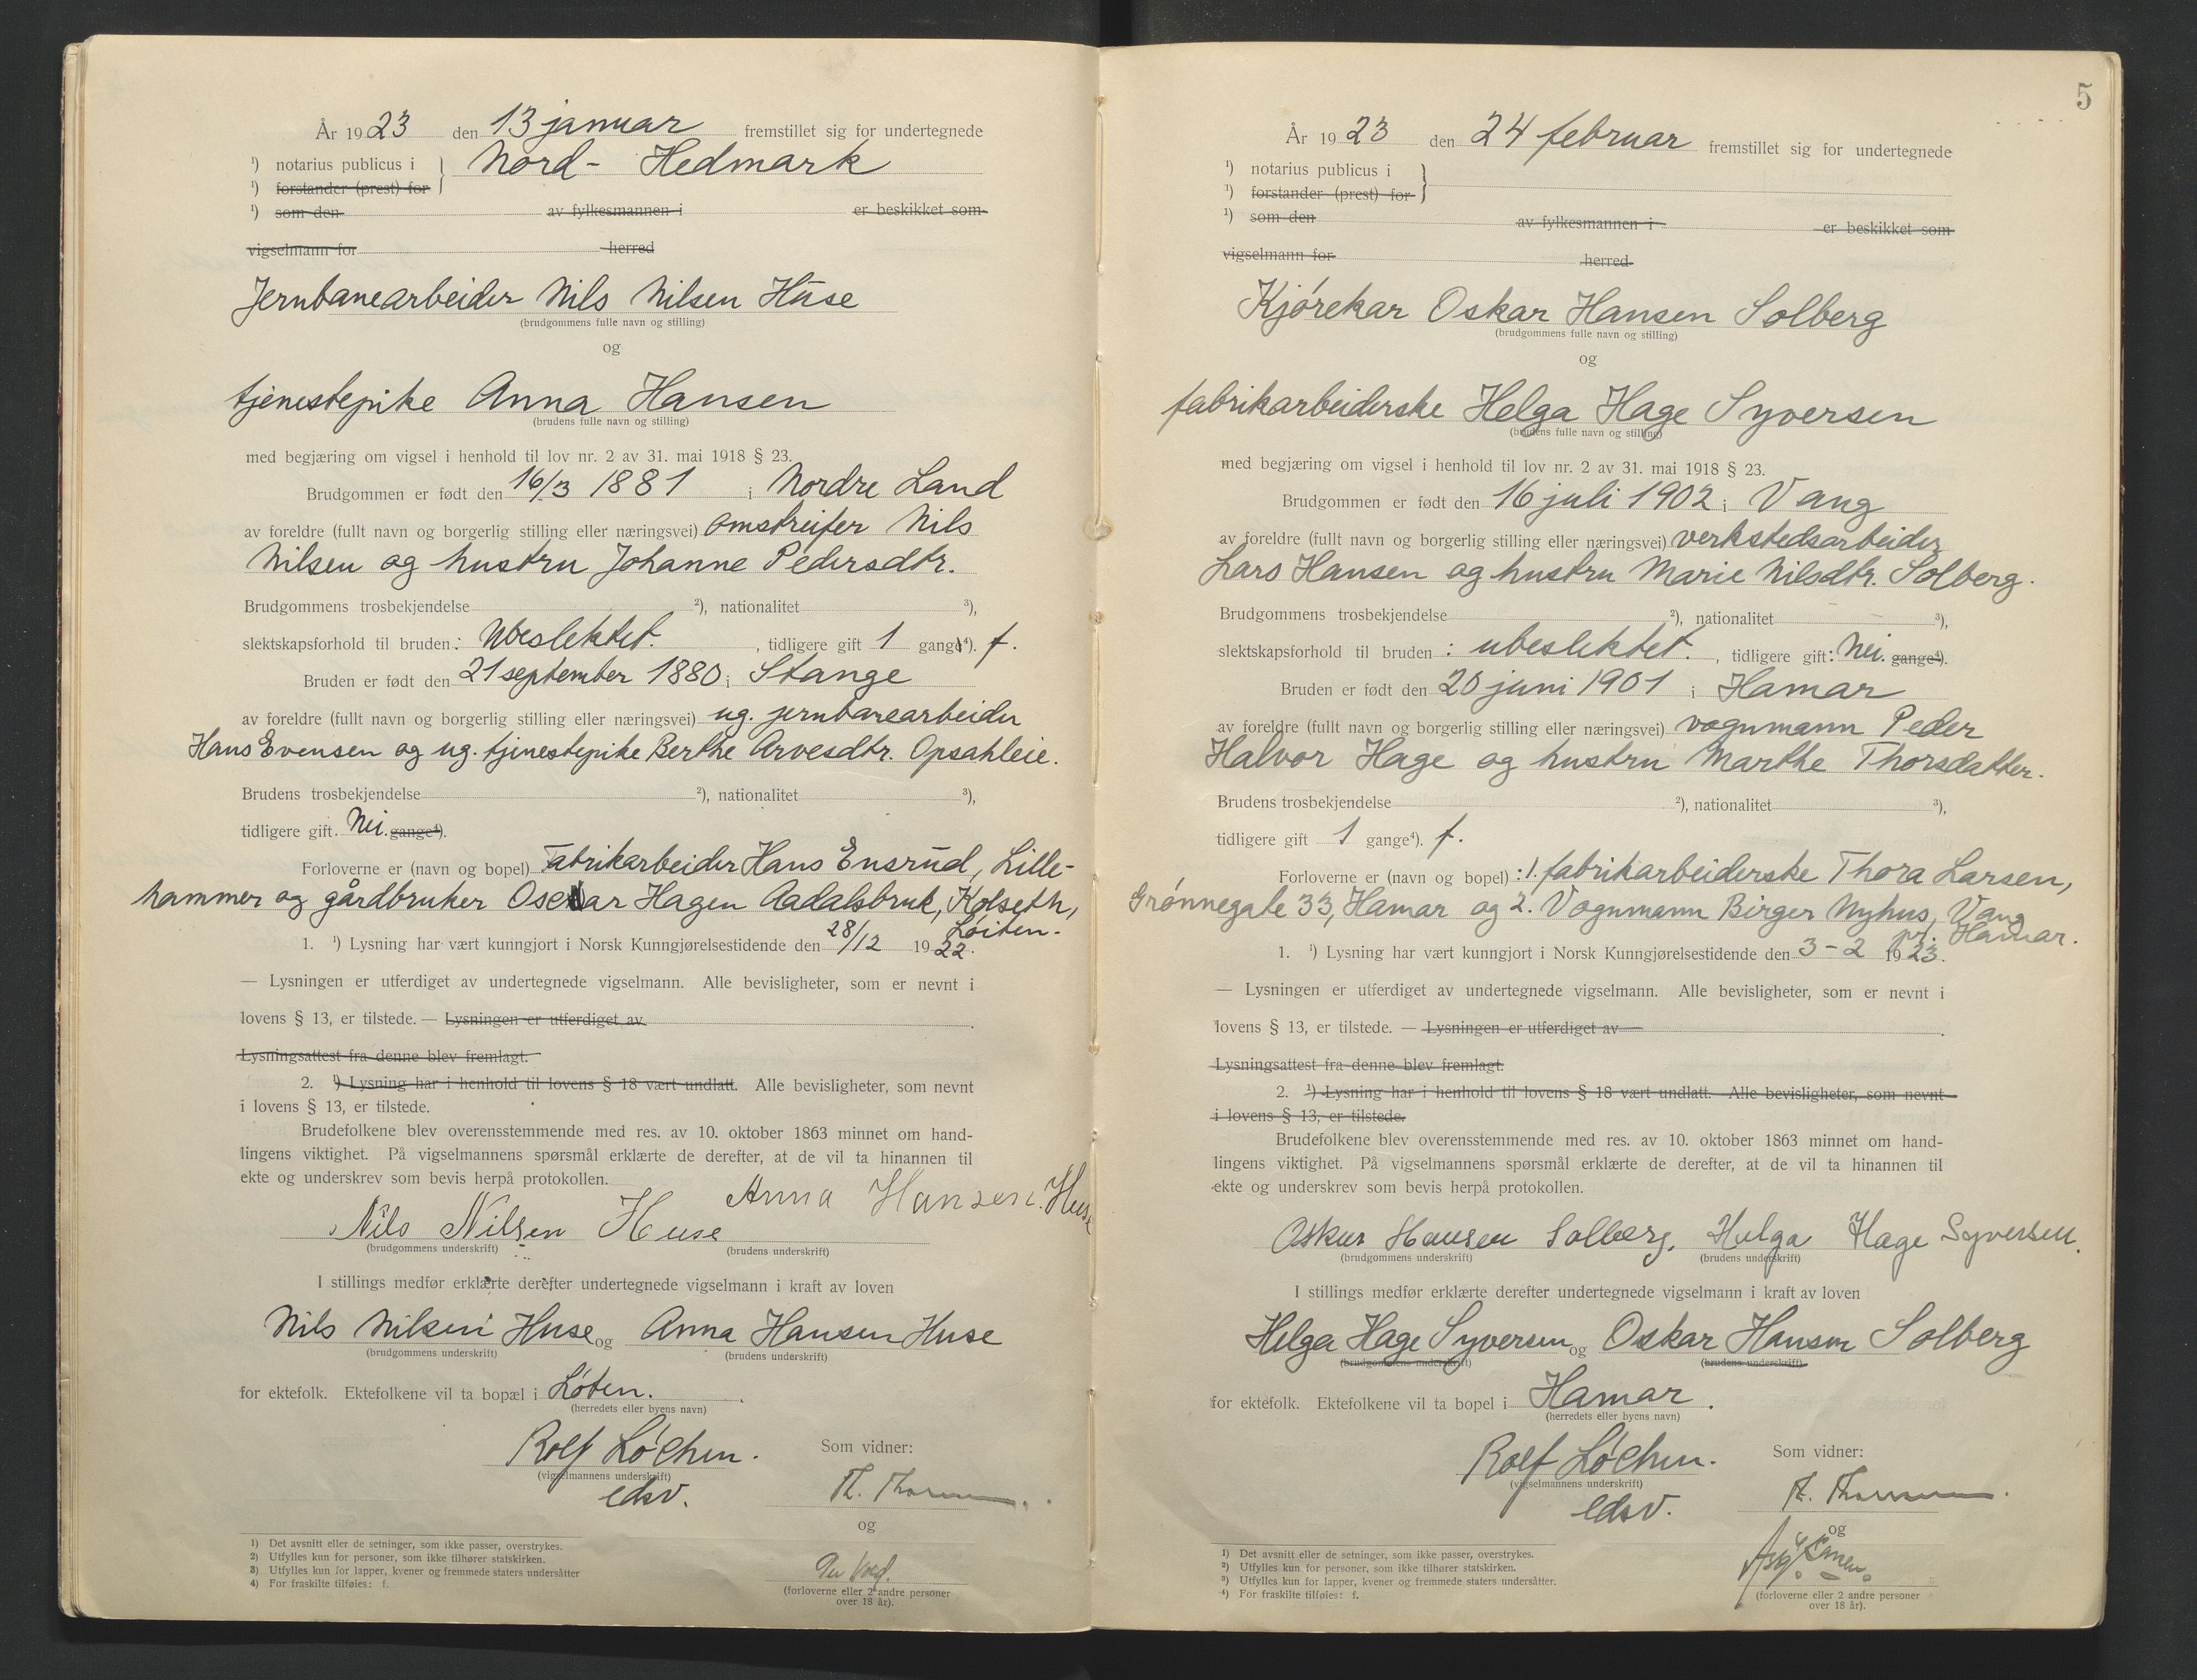 År 1923 den 13 januar fremstillet sig for undertegnede
¹) notarius publicus i } Nord- Hedmark
¹) forstander (prest) for
¹) som den av fylkesmannen i er beskikket som
vigselmann for herred
Jernbanearbeider Nils Nilsen Huse
(brudgommens fulle navn og stilling)
og
tjenestepike Anna Hansen
(brudens fulle navn og stilling)
med begjæring om vigsel i henhold til lov nr. 2 av 31. mai 1918 § 23.
Brudgommen er født den 16/3 1881 i Nordre Land
av foreldre (fullt navn og borgerlig stilling eller næringsvei) omstreifer Nils
Nilsen og hustru Johanne Pedersdtr.
Brudgommens trosbekjendelse ²), nationalitet ³),
slektskapsforhold til bruden: Ubeslektet. , tidligere gift 1 gang⁴). f.
Bruden er født den 21 september 1880 i Stange
av foreldre (fullt navn og borgerlig stilling eller næringsvei) ug. jernbanearbeider
Hans Evensen og ug. tjenestepike Berthe Arvesdtr. Opsahleie.
Brudens trosbekjendelse ²), nationalitet ³),
tidligere gift. Nei. gange⁴).
Forloverne er (navn og bopel) Fabrikarbeider Hans Ensrud, Lille-
hammer og gårdbruker Oskar Hagen Aadalsbruk, Kolseth,
Løiten.
1. ¹) Lysning har vært kunngjort i Norsk Kunngjørelsestidende den 28/12 1922.
— Lysningen er utferdiget av undertegnede vigselmann. Alle bevisligheter, som er nevnt i
lovens § 13, er tilstede. — Lysningen er utferdiget av .
Lysningsattest fra denne blev fremlagt.
2. ¹) Lysning har i henhold til lovens § 18 vært undlatt. Alle bevisligheter, som nevnt
i lovens § 13, er tilstede.
Brudefolkene blev overensstemmende med res. av 10. oktober 1863 minnet om hand-
lingens viktighet. På vigselmannens spørsmål erklærte de derefter, at de vil ta hinannen til
ekte og underskrev som bevis herpå protokollen.
Nils Nilsen Huse Anna Hansen. Huse
(brudgommens underskrift) (brudens underskrift)
I stillings medfør erklærte derefter undertegnede vigselmann i kraft av loven
Nils Nilsen Huse og Anna Hansen Huse
(brudgommens underskrift) (brudens underskrift)
for ektefolk. Ektefolkene vil ta bopæl i Løten.
(herredets eller byens navn)
Rolf Løchen. Som vidner:
(vigselmannens underskrift)
edsv.
Th.
og
(forloverne eller 2 andre personer
over 18 år).
1) Det avsnitt eller de setninger, som ikke passer, overstrykes.
2) Utfylles kun for personer, som ikke tilhører statskirken.
3) Utfylles kun for lapper, kvener og fremmede staters undersåtter
4) For fraskilte tilføies: f.
5
År 1923 den 24 februar fremstillet sig for undertegnede
¹) notarius publicus i }
¹) forstander (prest) for
¹) som den av fylkesmannen i er beskikket som
vigselmann for herred
Kjørekar Oskar Hansen Solberg
(brudgommens fulle navn og stilling)
og
fabrikarbeiderske Helga Hage Syversen
(brudens fulle navn og stilling)
med begjæring om vigsel i henhold til lov nr. 2 av 31. mai 1918 § 23.
Brudgommen er født den 16 juli 1902 i Vang
av foreldre (fullt navn og borgerlig stilling eller næringsvei) verkstedsarbeider
Lars Hansen og hustru Marie Nilsdtr. Solberg.
Brudgommens trosbekjendelse ²), nationalitet ³),
slektskapsforhold til bruden : ubeslektet. , tidligere gift: Nei. gange⁴).
Bruden er født den 20 juni 1901 i Hamar
av foreldre (fullt navn og borgerlig stilling eller næringsvei) vognmann Peder
Halvor Hage og hustru Marthe Thorsdatter.
Brudens trosbekjendelse ²), nationalitet ³),
tidligere gift 1 gange⁴). f.
Forloverne er (navn og bopel) : 1. fabrikarbeiderske Thora Larsen,
Grønnegate 33, Hamar og 2. Vognmann Birger Nyhus, Vang
pr. Hamar.
1. ¹) Lysning har vært kunngjort i Norsk Kunngjørelsestidende den 3-2 1923.
— Lysningen er utferdiget av undertegnede vigselmann. Alle bevisligheter, som er nevnt i
lovens § 13, er tilstede. — Lysningen er utferdiget av .
Lysningsattest fra denne blev fremlagt.
2. ¹) Lysning har i henhold til lovens § 18 vært undlatt. Alle bevisligheter, som nevnt
i lovens § 13, er tilstede.
Brudefolkene blev overensstemmende med res. av 10. oktober 1863 minnet om hand-
lingens viktighet. På vigselmannens spørsmål erklærte de derefter, at de vil ta hinannen til
ekte og underskrev som bevis herpå protokollen.
Oskar Hansen Solberg, Helga Hage Syversen.
(brudgommens underskrift) (brudens underskrift)
I stillings medfør erklærte derefter undertegnede vigselmann i kraft av loven
Helga Hage Syversen og Oskar Hansen Solberg
(brudgommens underskrift) (brudens underskrift)
for ektefolk. Ektefolkene vil ta bopel i Hamar.
(herredets eller byens navn)
Rolf Løchen. Som vidner:
(vigselmannens underskrift)
edsv.
Th.
og
(forloverne eller 2 andre personer
over 18 år).
1) Det avsnitt eller de setninger, som ikke passer, overstrykes.
2) Utfylles kun for personer, som ikke tilhører statskirken.
3) Utfylles kun for lapper, kvener og fremmede staters undersåtter.
4) For fraskilte tilføies: f.